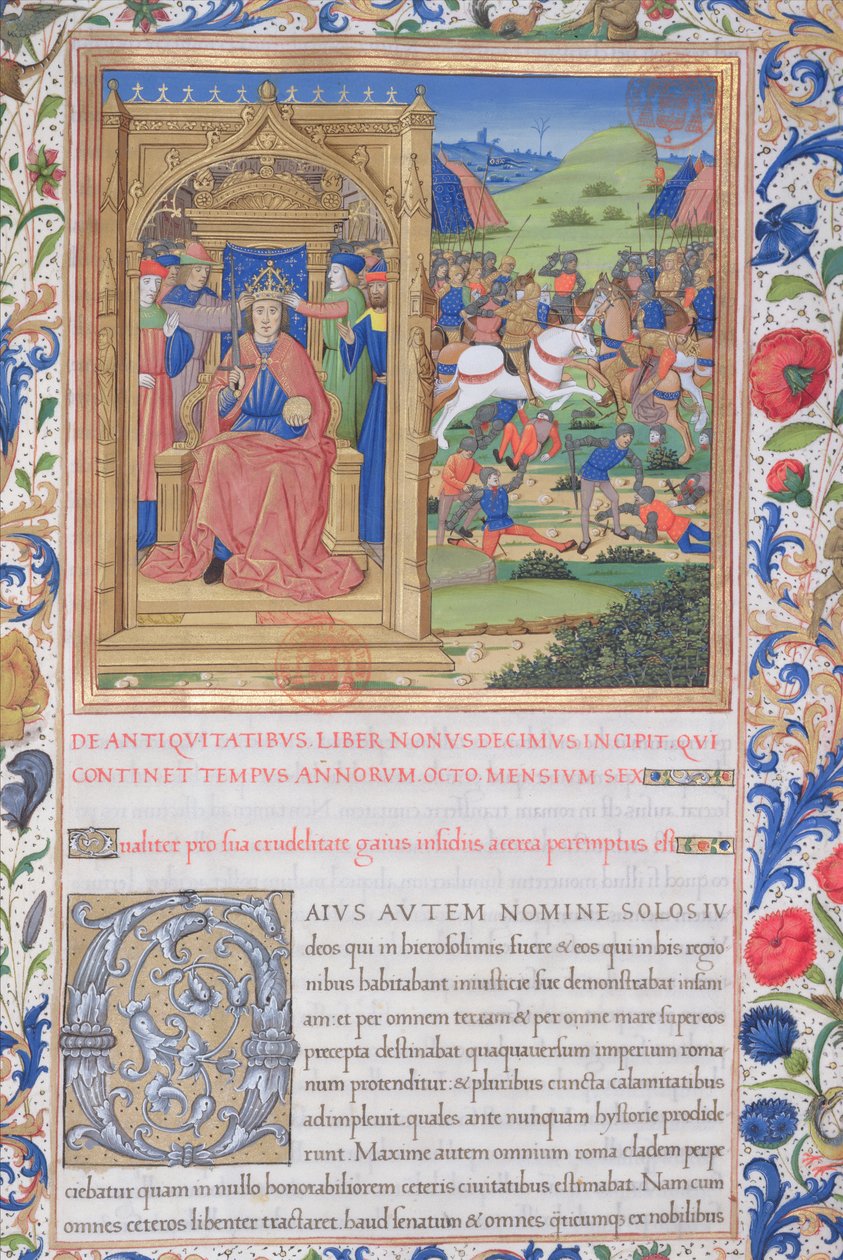 DE ANTIQVITATIBVS. LIBER NONUS DECIMVS INCIPIT. QVI
CONTINET TEMPVS AÑNORVM. OCTO. MENSIVM SEX
Qualiter pro sua crudelitate gaius insidiis acerea peremptus est
GAIVS AVTEM NOMINE SOLOS IV
deos qui in hierosolimis fuere & eos qui in his regio
nibus habitabant iniusticie sue demonstrabat insani
am: et per omnem terram & per omne mare super eos
precepta destinabat quaquauersum imperium roma
num protenditur: & pluribus cuncta calamitatibus
adimpleuit. quales ante nunquam hystorie prodide
runt. Maxime autem omnium roma cladem perpe
ciebatur quam in nullo honorabiliorem ceteris ciuitatibus estimabat. Nam cum
omnes ceteros libenter tractaret. haud senatum & omnes q̃ticumq; ex nobilibus